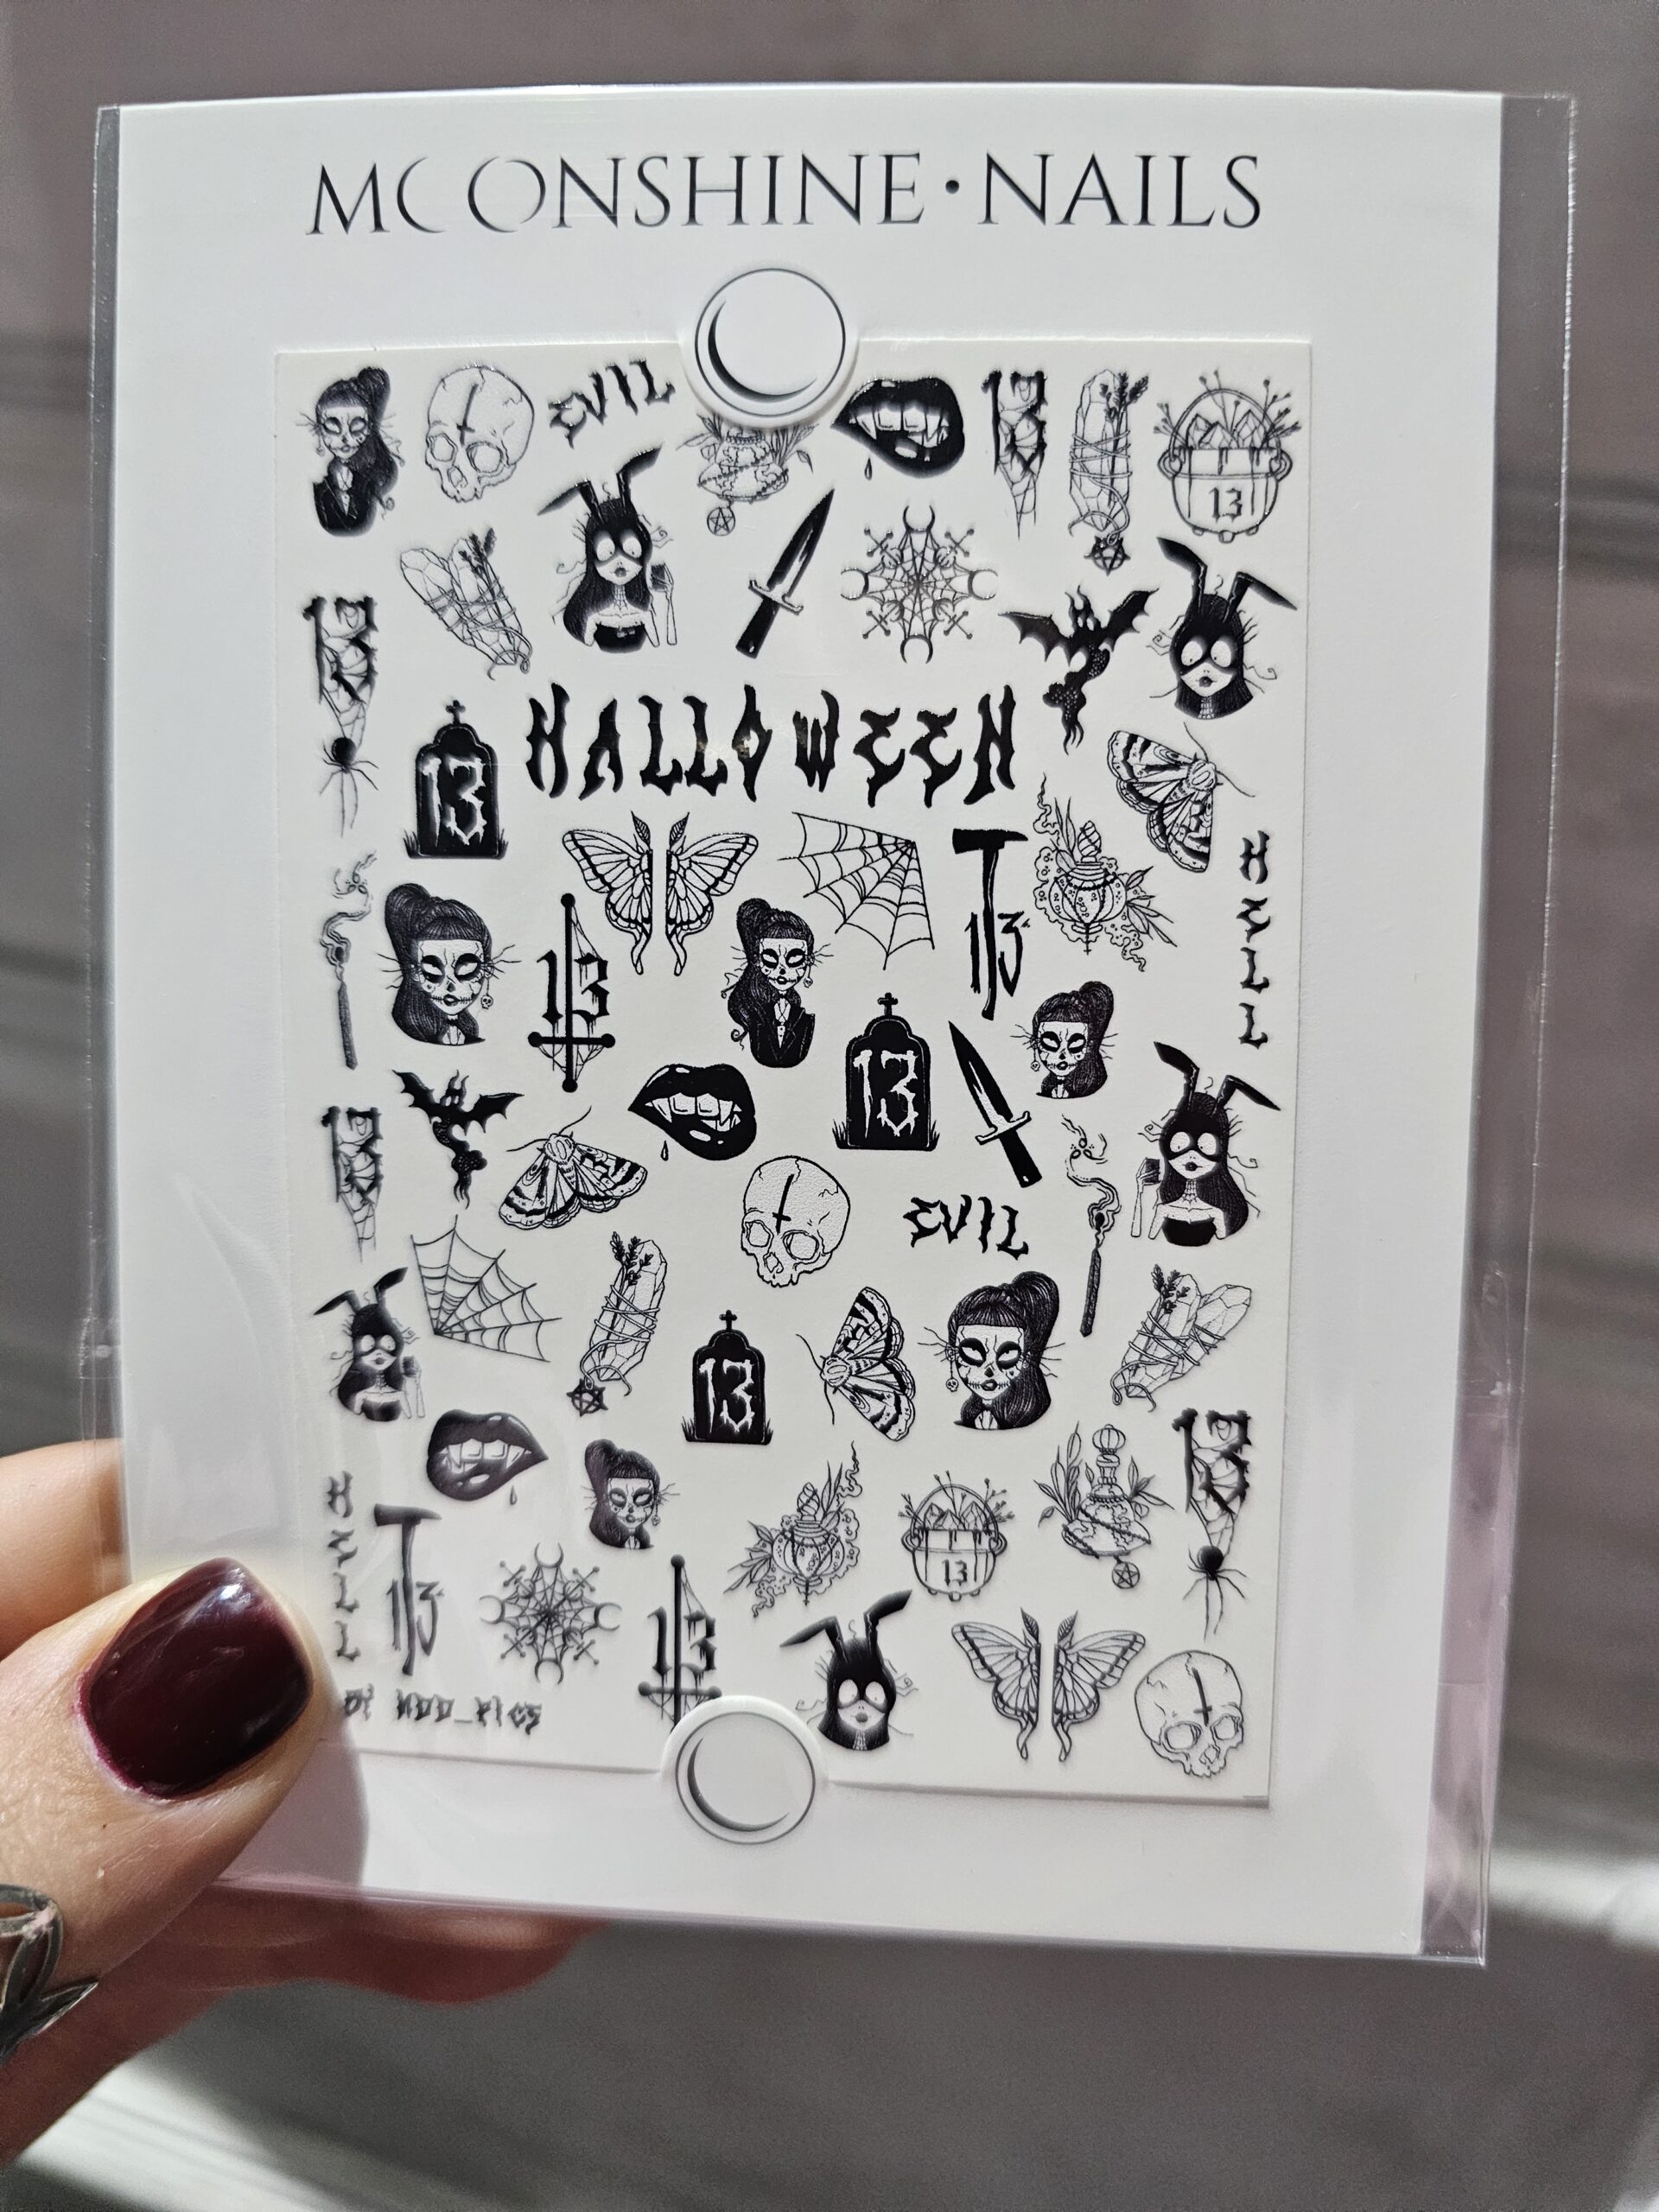 MOONSHINE • NAILS
EVIL
13
13
13
HALLOWEEN
13
13
13
HELL
13
13
EVIL
13
13
HELL
13
13
13
BY NDD_PICS